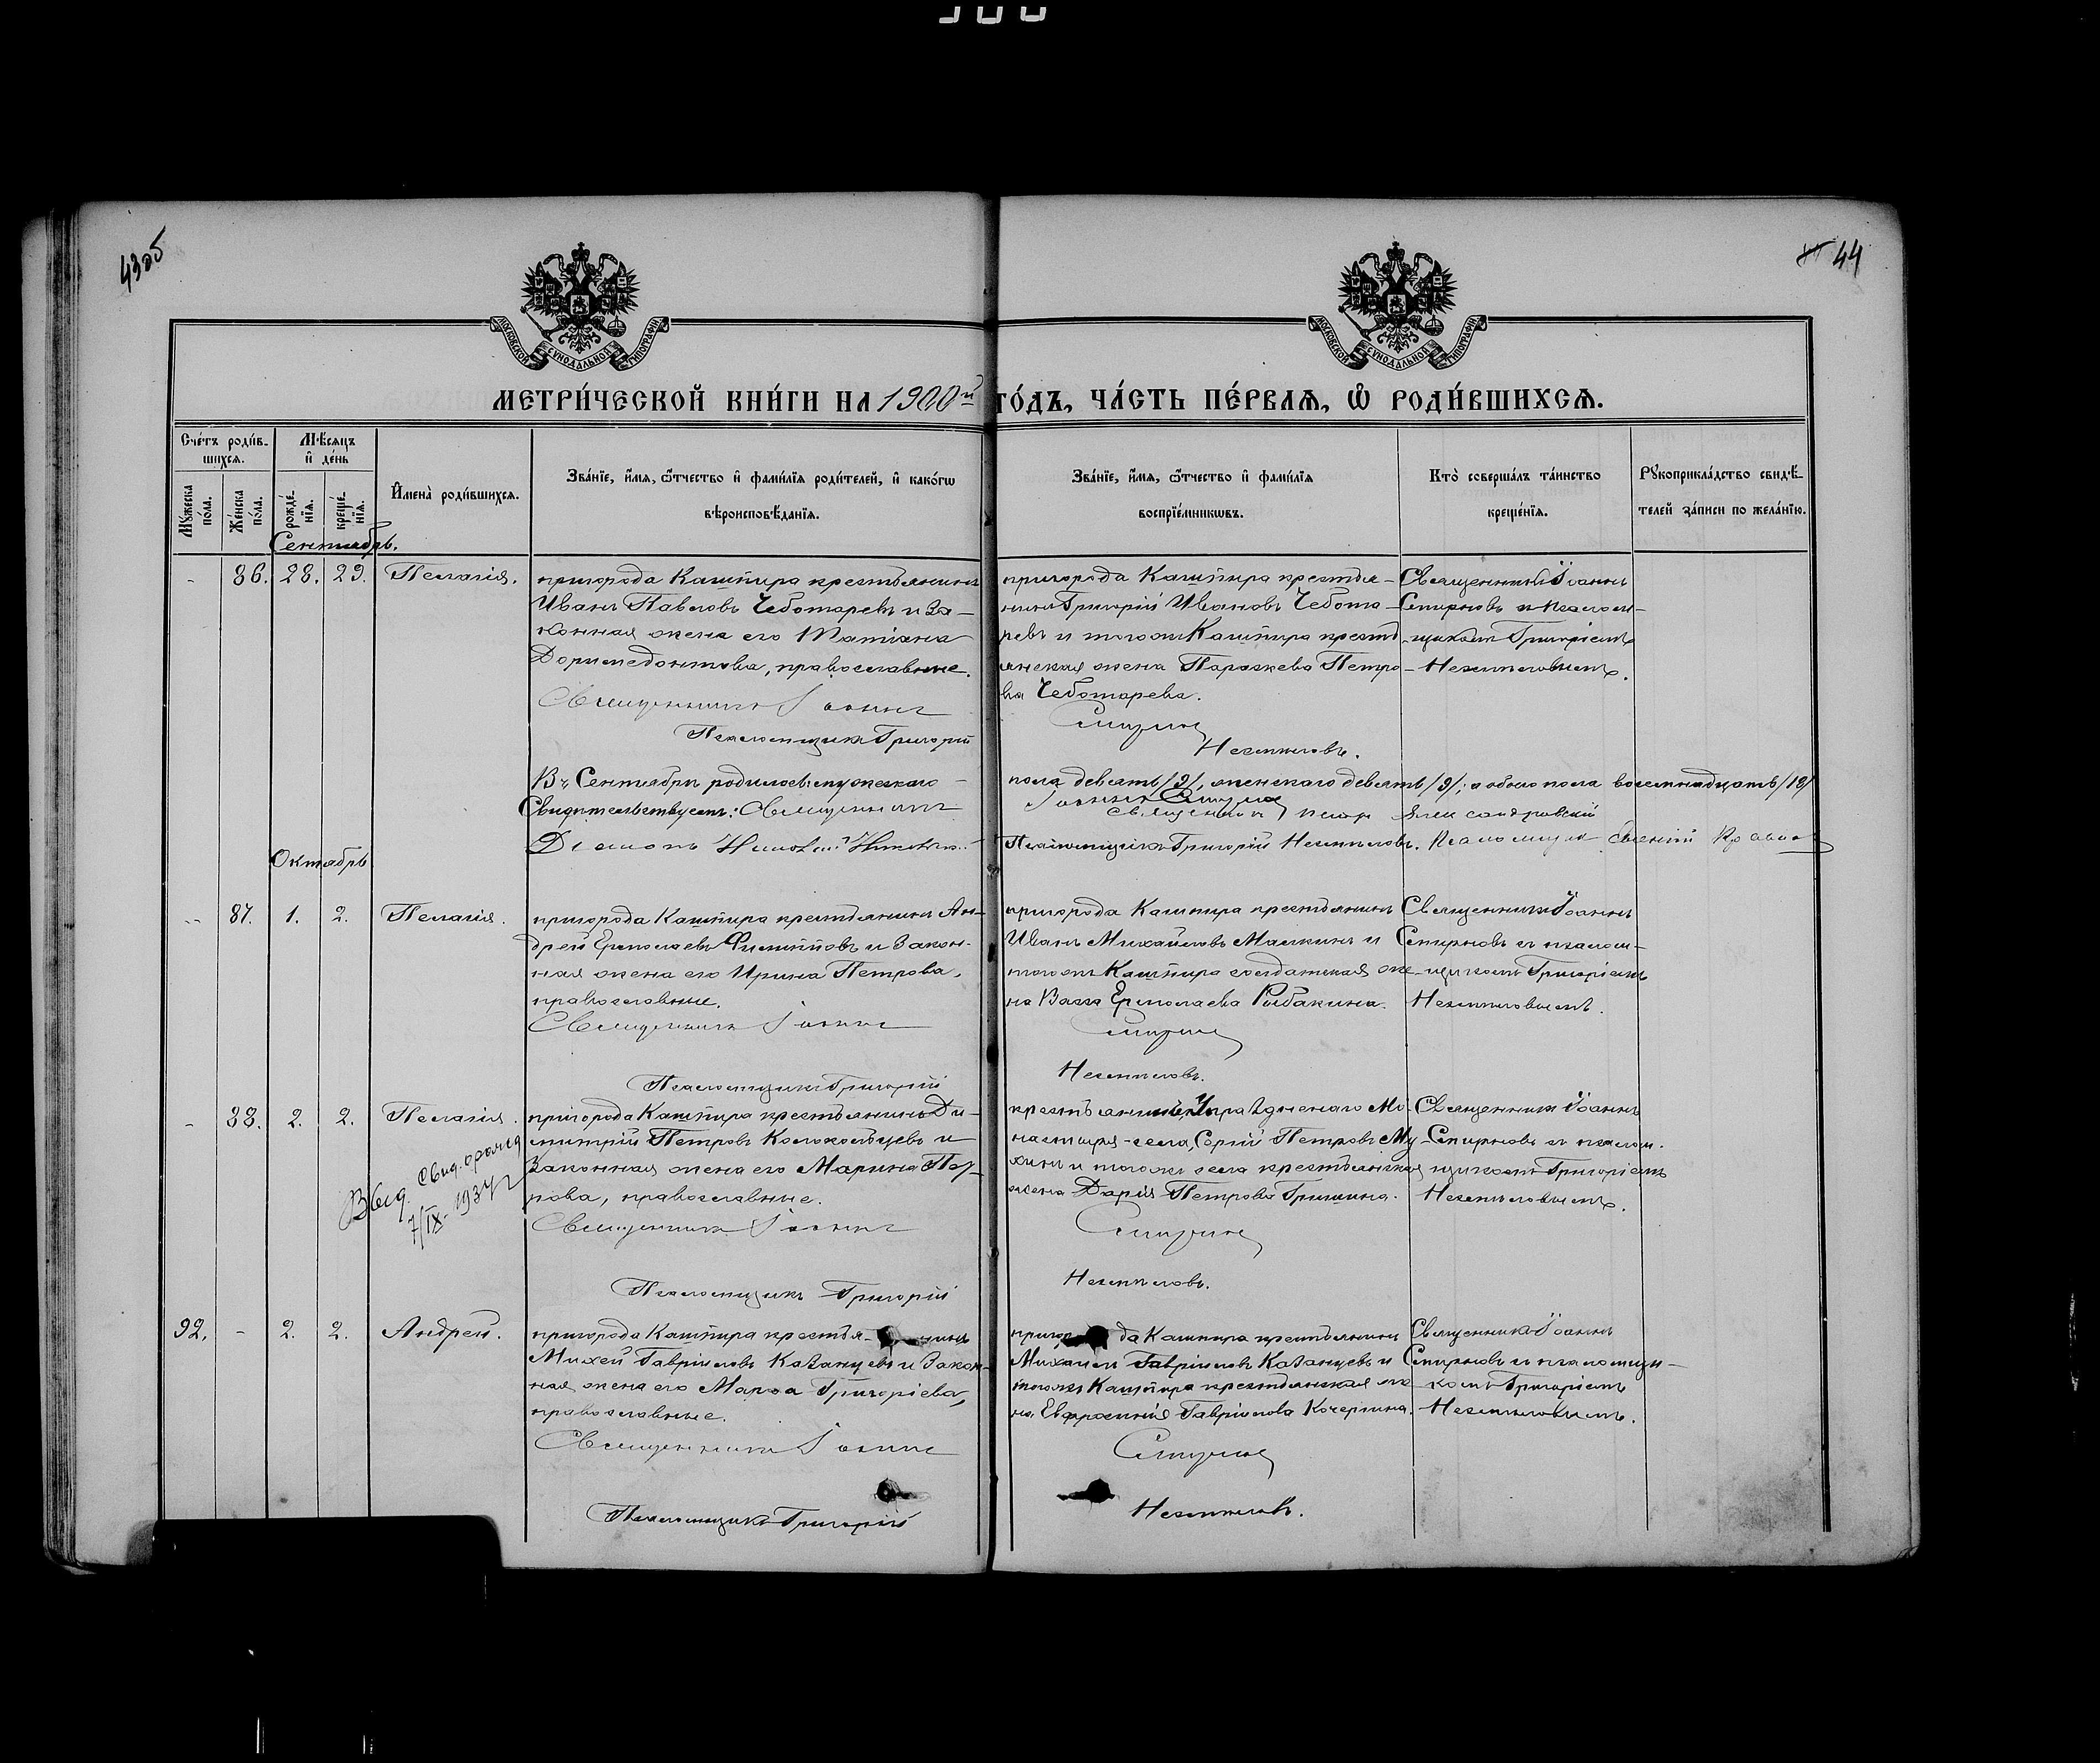 43об
44
МОСКОВСКОЙ СУНОДАЛЬНОЙ ТИПОГРАФІИ
МОСКОВСКОЙ СУНОДАЛЬНОЙ ТИПОГРАФІИ
МЕТРИ́ЧЕСКОЙ КНИ́ГИ НА 1900й ГО́ДЪ, ЧА́СТЬ ПЕ́РВАѦ, Ѡ РОДИ́ВШИХСѦ.
Сче́тъ роди́в-
шихсѧ.
Мꙋ́жеска по́ла.
Же́нска по́ла.
Мѣ́сѧцъ
и҆ де́нь
рожде́-
нїѧ.
креще́-
нїѧ.
И҆мена̀ роди́вшихсѧ.
Зва́нїе, и҆́мѧ, ѻ҆́тчество и҆ фамн́лїѧ роди́телей, и҆ како́гѡ
вѣроисповѣ́данїѧ.
Зва́нїе, и҆́мѧ, ѻ҆́тчество и҆ фами́лїѧ
воспрїе́мникѡвъ.
Кто̀ соверша́лъ та́инство
креще́нїѧ.
Рꙋкоприкла́дство свидѣ́-
телей за́писи по жела́нїю.
Сентябрь.
- 86. 28. 29. Пелагія.
пригорода Кашпира крестьянинъ
Иванъ Павловъ Чеботаревъ и за-
конная жена его Татіана
Доримедонтова, православные.
Священникъ Іоаннъ
Псаломщикъ Григорій
пригорода Кашпира крестья-
нинъ Григорій Ивановъ Чебота-
ревъ и тогожъ Кашпира кресть
янская жена Параскева Петро-
ва Чеботарева.
Смирновъ
Незналовъ.
Священникъ Іоаннъ
Смирновъ и псалом-
щикомъ Григоріемъ
В Сентябрѣ родилось: мужскаго
пола девять /9/, женскаго девять /9/; а обоего пола восемнадцать /18/
Свидѣтельствуемъ: Священникъ
Іоаннъ Смирновъ
Священникъ Александровскій
Діаконъ
Псаломщикъ Григорій
Псаломщикъ Евгеній
Октябрь
- 87. 1. 2. Пелагія.
пригорода Кашпира крестьянинъ Ан-
дрей Ермолаевъ Филипповъ и закон-
ная жена его Ирина Петрова,
православные.
Священникъ Іоаннъ
Псаломщикъ Григорій
пригорода Кашпира крестьянинъ
Иванъ Михайловъ Малкинъ и
тогожъ Кашпира солдатская же-
на Васса Ермолаева Рыбакина.
Смирновъ
Священникъ Іоаннъ
Смирновъ съ псалом-
щикомъ Григоріемъ
- 88. 2. 2. Пелагія.
Выд. свид. о рожд
7/IX-1934 г
пригорода Кашпира крестьянинъ Ди-
митрій Петровъ Колокольцевъ и
законная жена его Марина Пет-
рова, православные.
Священникъ Іоаннъ
Псаломщикъ Григорій
настыря-села, Сергій Петровъ Му-
хинъ и тогожъ села крестьянская
жена Дарія Петрова Гришина.
Смирновъ
Священникъ Іоаннъ
Смирновъ съ псалом-
щикомъ Григоріемъ
92. - 2. 2. Андрей.
пригорода Кашпира крестья-нинъ
Михей Гавріиловъ Казанцевъ и закон-
ная жена его Марѳа Григоріева,
православные.
Священникъ Іоаннъ
Псаломщикъ Григорій
пригорода Кашпира крестьянинъ
Михаилъ Гавріиловъ Казанцевъ и
тогожъ Кашпира крестьянская же
на Евфросинія Гавріилова Кочергина.
Смирновъ
Священникъ Іоаннъ
Смирновъ и псаломщи-
комъ Григоріемъ